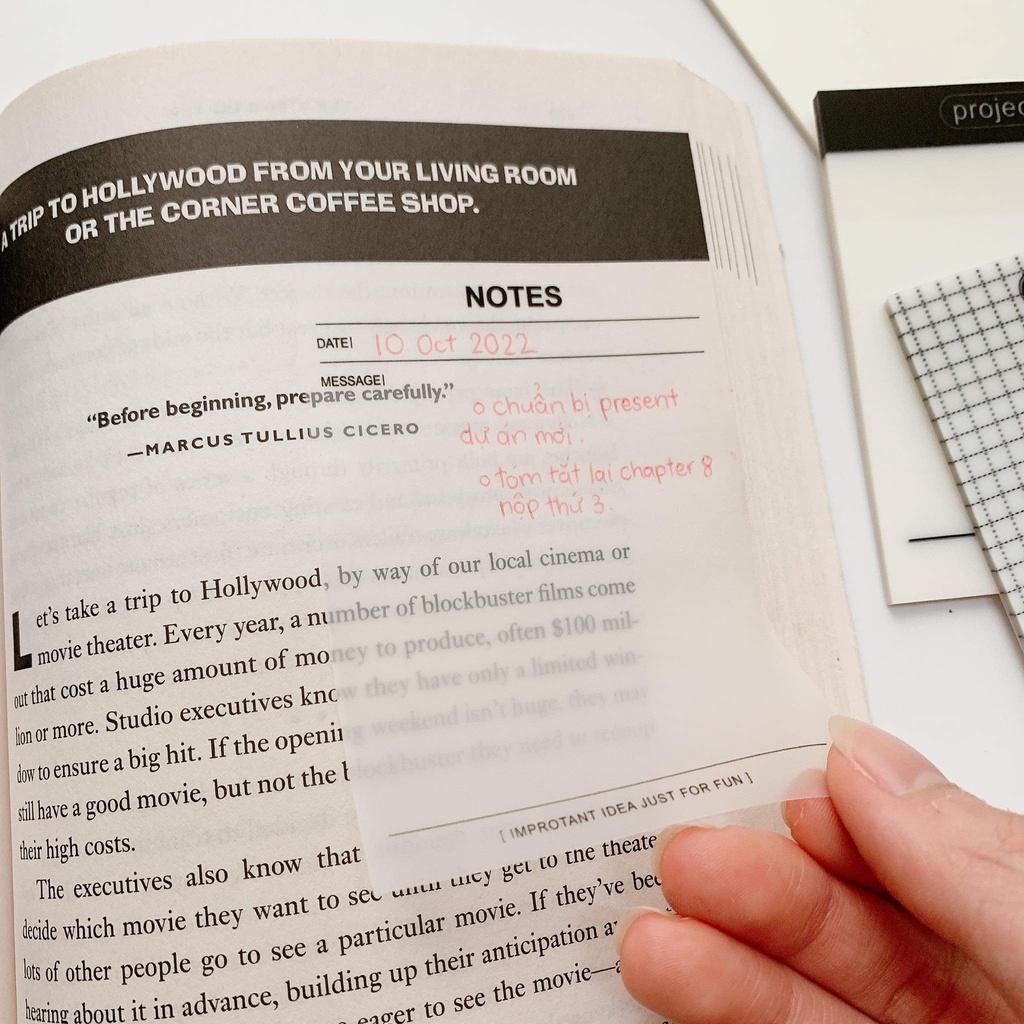 A TRIP TO HOLLYWOOD FROM YOUR LIVING ROOM
OR THE CORNER COFFEE SHOP.
NOTES
DATE| 10 Oct 2022
MESSAGE|
“Before beginning, prepare carefully.”
—MARCUS TULLIUS CICERO
o chuẩn bị present
dự án mới.
o tóm tắt lại chapter 8
nộp thứ 3.
Let’s take a trip to Hollywood, by way of our local cinema or
movie theater. Every year, a number of blockbuster films come
out that cost a huge amount of money to produce, often $100 mil-
lion or more. Studio executives know they have only a limited win-
dow to ensure a big hit. If the opening weekend isn’t huge, they may
still have a good movie, but not the blockbuster they need to recoup
their high costs.
[ IMPROTANT IDEA JUST FOR FUN ]
The executives also know that
decide which movie they want to see until they get to the theate
lots of other people go to see a particular movie. If they’ve bee
hearing about it in advance, building up their anticipation a
eager to see the movie—a
projec